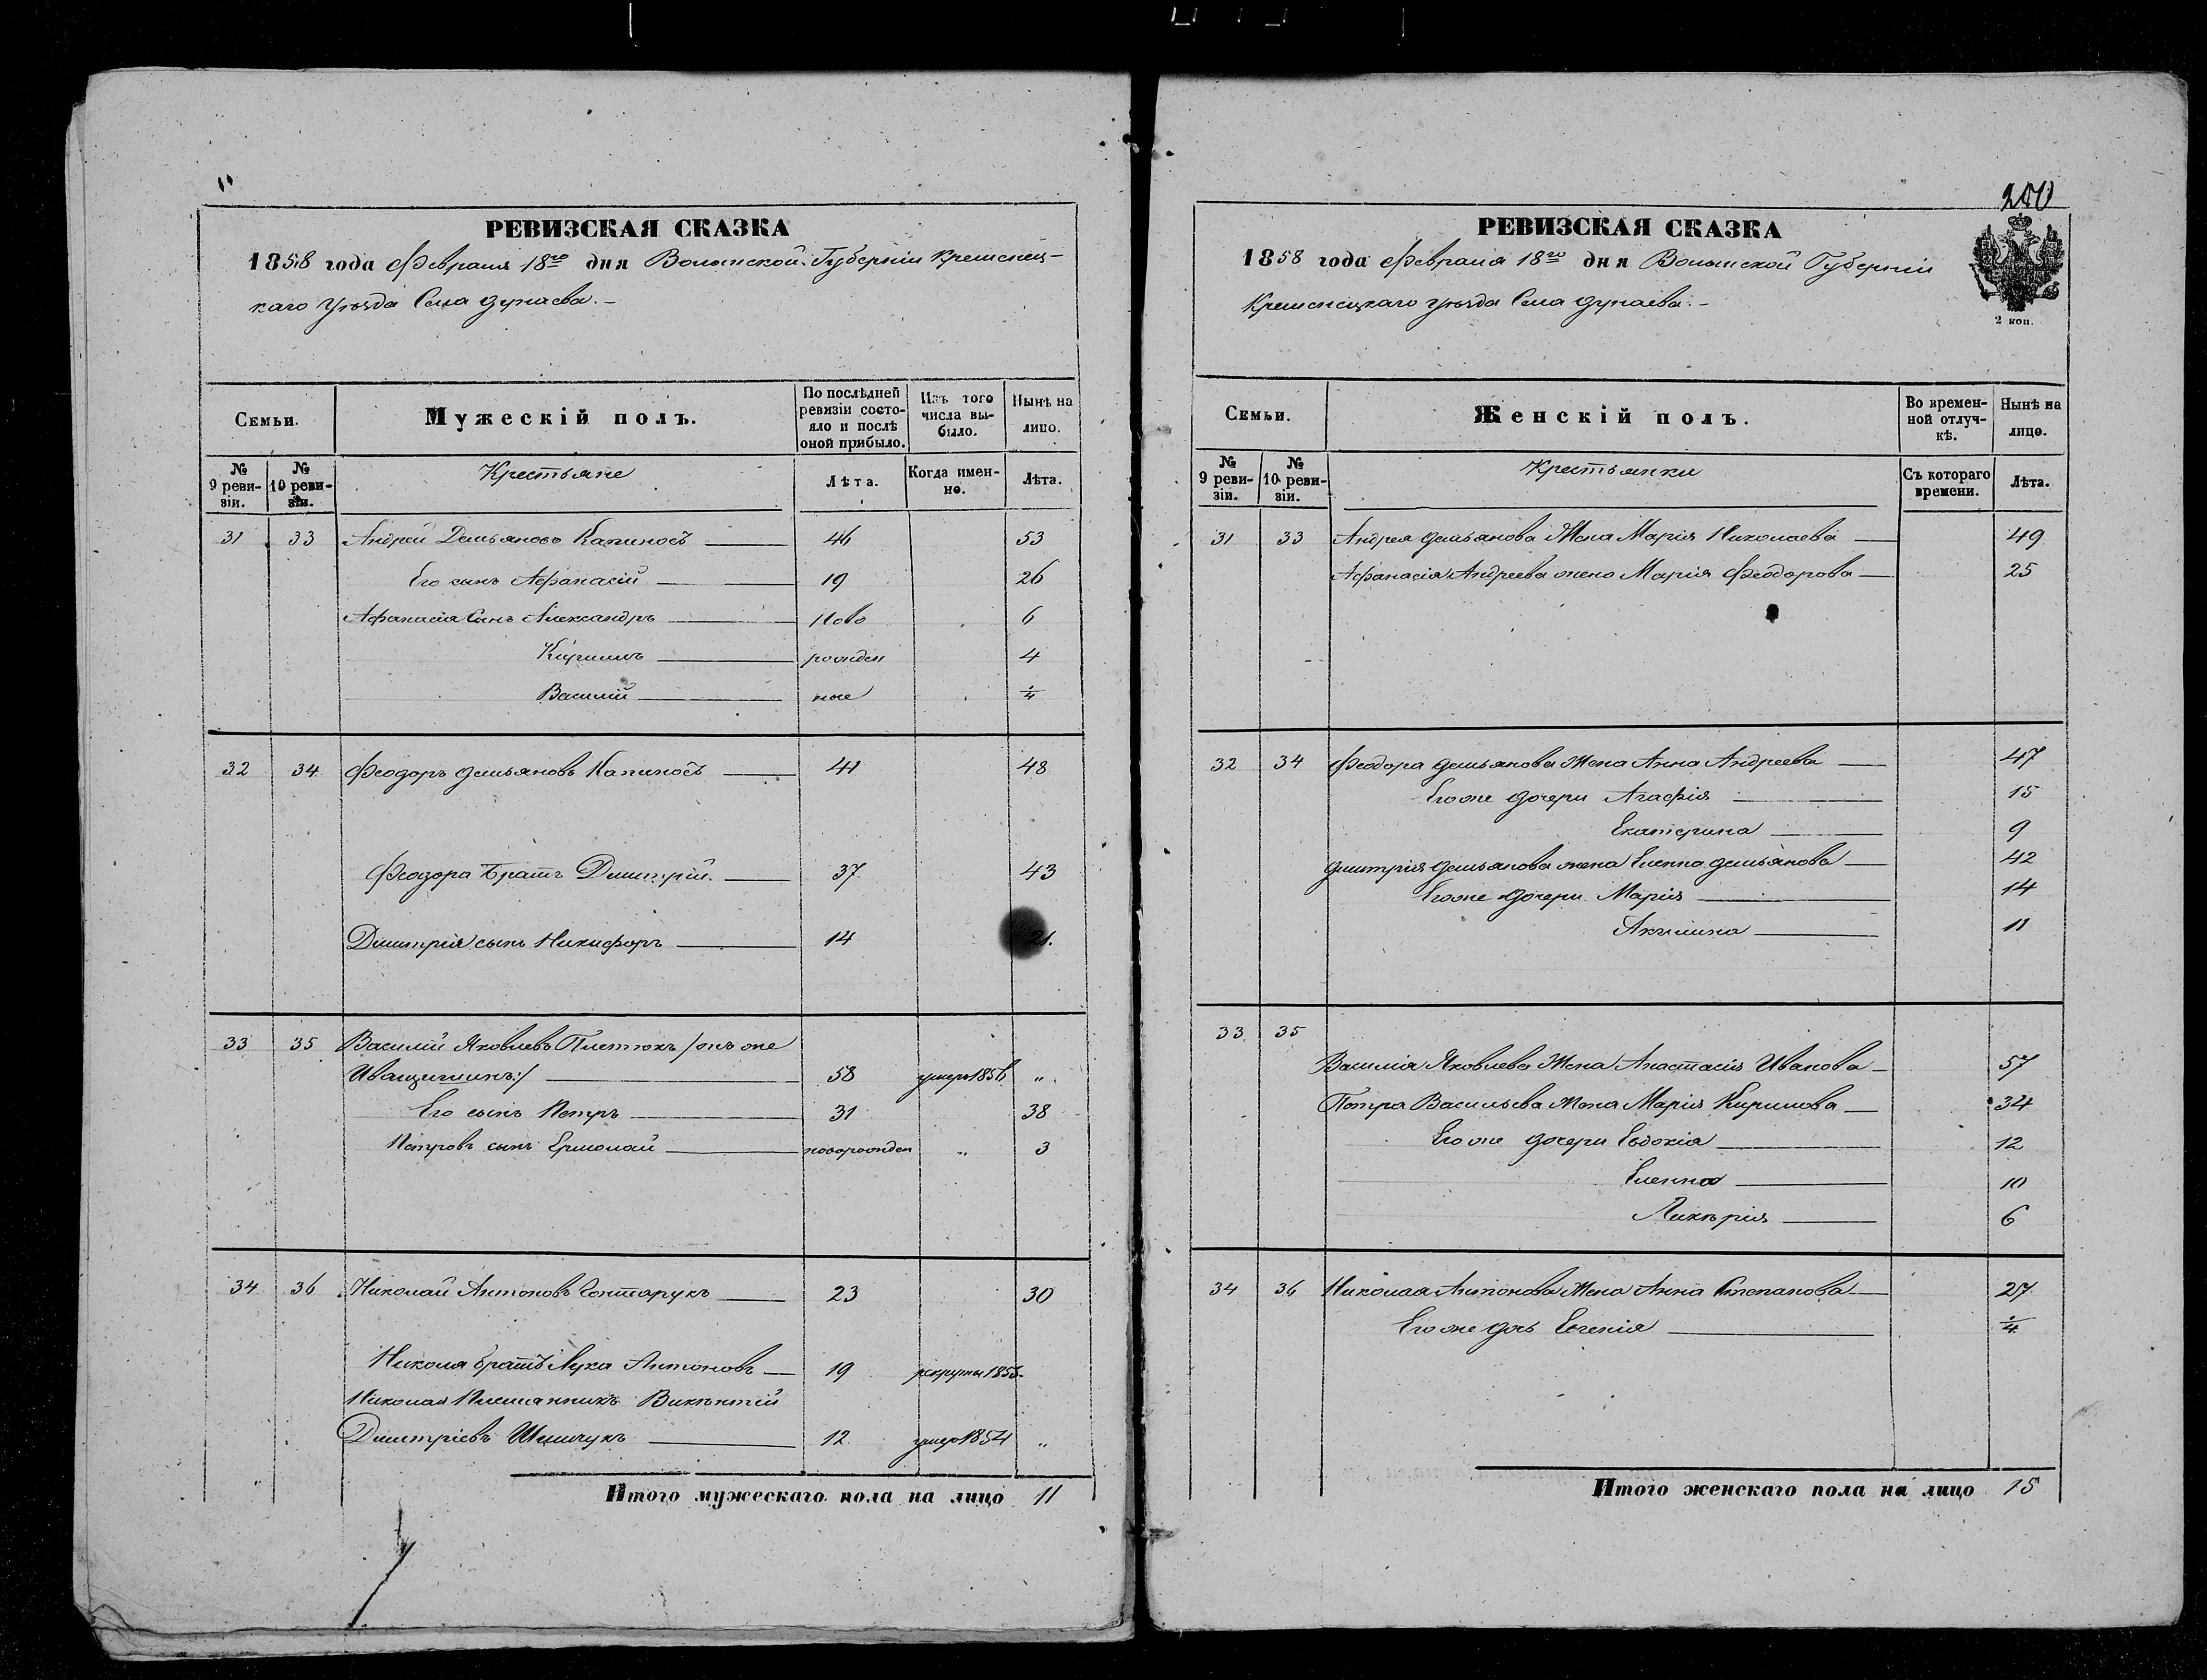 РЕВИЗСКАЯ СКАЗКА
1858 года Февраля 18го дня Волынской Губерніи Кременец-
каго Уѣзда Села Дунаева.-
Семьи.
Мужескій полъ.
По послѣдней ревизіи состояло и послѣ оной прибыло.
Изъ того числа выбыло.
Нынѣ на лицо.
№ 9 ревизіи.
№ 10 ревизіи.
Крестьяне
Лѣта.
Когда именно.
Лѣта.
31 33 Андрей Демьяновъ Капиносъ 46 53
Его сынъ Афанасій 19 26
Афанасія Сынъ Александръ Ново 6
Кирилъ рожден 4
Василій ные ¼
32 34 Феодоръ Демьяновъ Капиносъ 41 48
Феодора Братъ Димитрій. 37 43
Димитрія сынъ Никифоръ 14 21.
33 35 Василій Яковлевъ Плетюкъ /онъ же
Иващишинъ:/ 58 умеръ 1856 „
Его сынъ Петръ 31 38
Петровъ сынъ Ермолай новорожден „ 3
34 36 Николай Антоновъ Гонтарукъ 23 30
Николая братъ Лука Антоновъ 19 рекруты 1855.
Николая Племянникъ Викѣнтій
Димитріевъ 12 умеръ 1854 „
Итого мужескаго пола на лицо 11
240
РЕВИЗСКАЯ СКАЗКА
1858 года Февраля 18го дня Волынской Губерніи
Кременецкаго Уѣзда Села Дунаева.-
2 коп.
Семьи.
Женскій полъ.
Во временной отлучкѣ.
Нынѣ на лице.
№ 9 ревизіи.
№ 10 ревизіи.
Крестьянки
Съ котораго времени.
Лѣта.
31 33 Андрея Демьянова Жена Марія Николаева 49
Афанасія Андреева жена Марія Феодорова 25
32 34 Феодора Демьянова Жена Анна Андреева 47
Его же Дочери Агафія 15
Екатерина 9
Димитрія Демьянова жена Еленна Демьянова 42
Его же Дочери Марія 14
Акилина 11
33 35
Василія Яковлева Жена Анастасія Иванова 57
Петра Васильева Жена Марія Кирилова 34
Его же Дочери Евдокія 12
Еленна 10
Ликѣрія 6
34 36 Николая Антонова Жена Анна Степанова 27
Его же Дочь Евгенія ¼
Итого женскаго пола на лицо 15